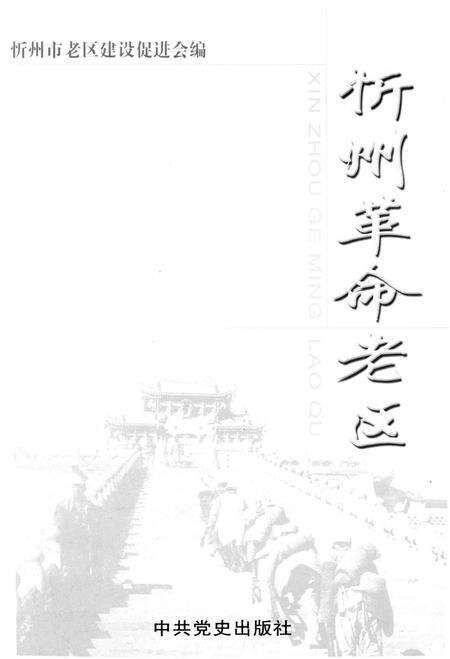 忻州市老区建设促进会编
忻州革命老区
XIN ZHOU GE MING LAO QU
中共党史出版社